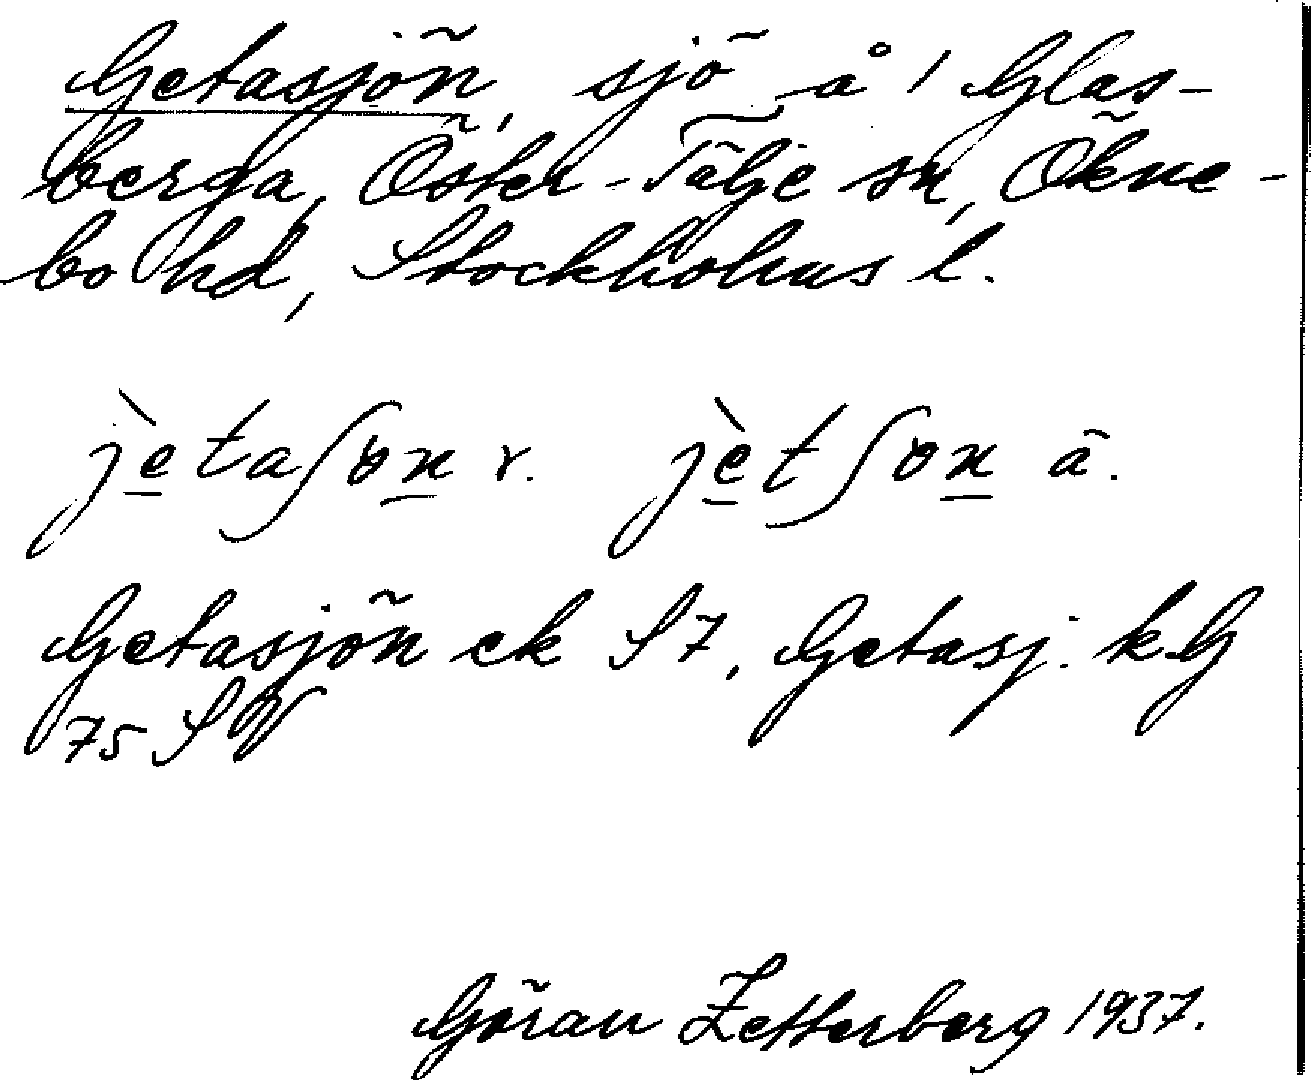 Getasjön, sjö å 1 Glas-
berga, Öster-Tälje sn, Ökne-
bo hd, Stockholms l.
jètaʃon r. jètʃon ä.
Getasjön ek S 7, Getasj. k G
75 SV
Göran Zetterberg 1937.